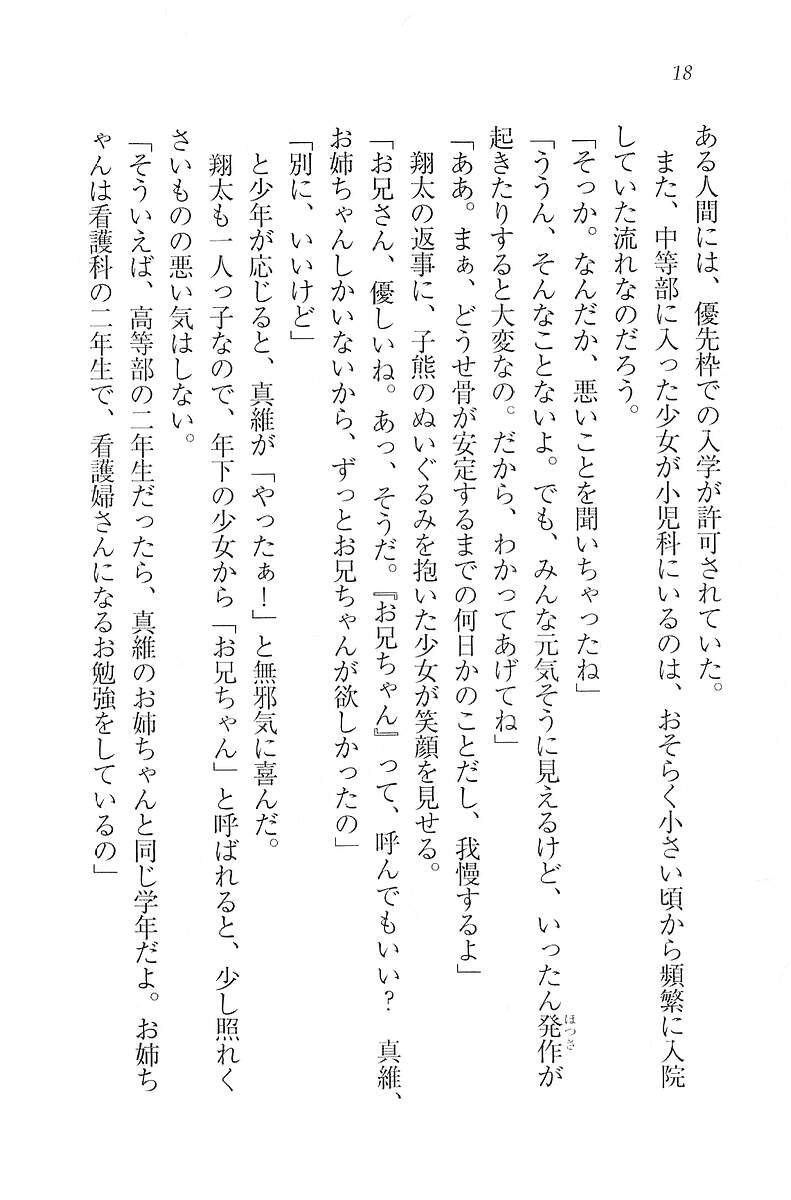 18
ある人間には、優先枠での入学が許可されていた。
また、中等部に入った少女が小児科にいるのは、おそらく小さい頃から頻繁に入院
していた流れなのだろう。
「そっか。なんだか、悪いことを聞いちゃったね」
「ううん、そんなことないよ。でも、みんな元気そうに見えるけど、いったん発作が
ほっさ
起きたりすると大変なの。だから、わかってあげてね」
「ああ。まぁ、どうせ骨が安定するまでの何日かのことだし、我慢するよ」
翔太の返事に、子熊のぬいぐるみを抱いた少女が笑顔を見せる。
「お兄さん、優しいね。あっ、そうだ。『お兄ちゃん』って、呼んでもいい？　真維、
お姉ちゃんしかいないから、ずっとお兄ちゃんが欲しかったの」
「別に、いいけど」
と少年が応じると、真維が「やったぁ！」と無邪気に喜んだ。
翔太も一人っ子なので、年下の少女から「お兄ちゃん」と呼ばれると、少し照れく
さいものの悪い気はしない。
「そういえば、高等部の二年生だったら、真維のお姉ちゃんと同じ学年だよ。お姉ち
ゃんは看護科の二年生で、看護婦さんになるお勉強をしているの」